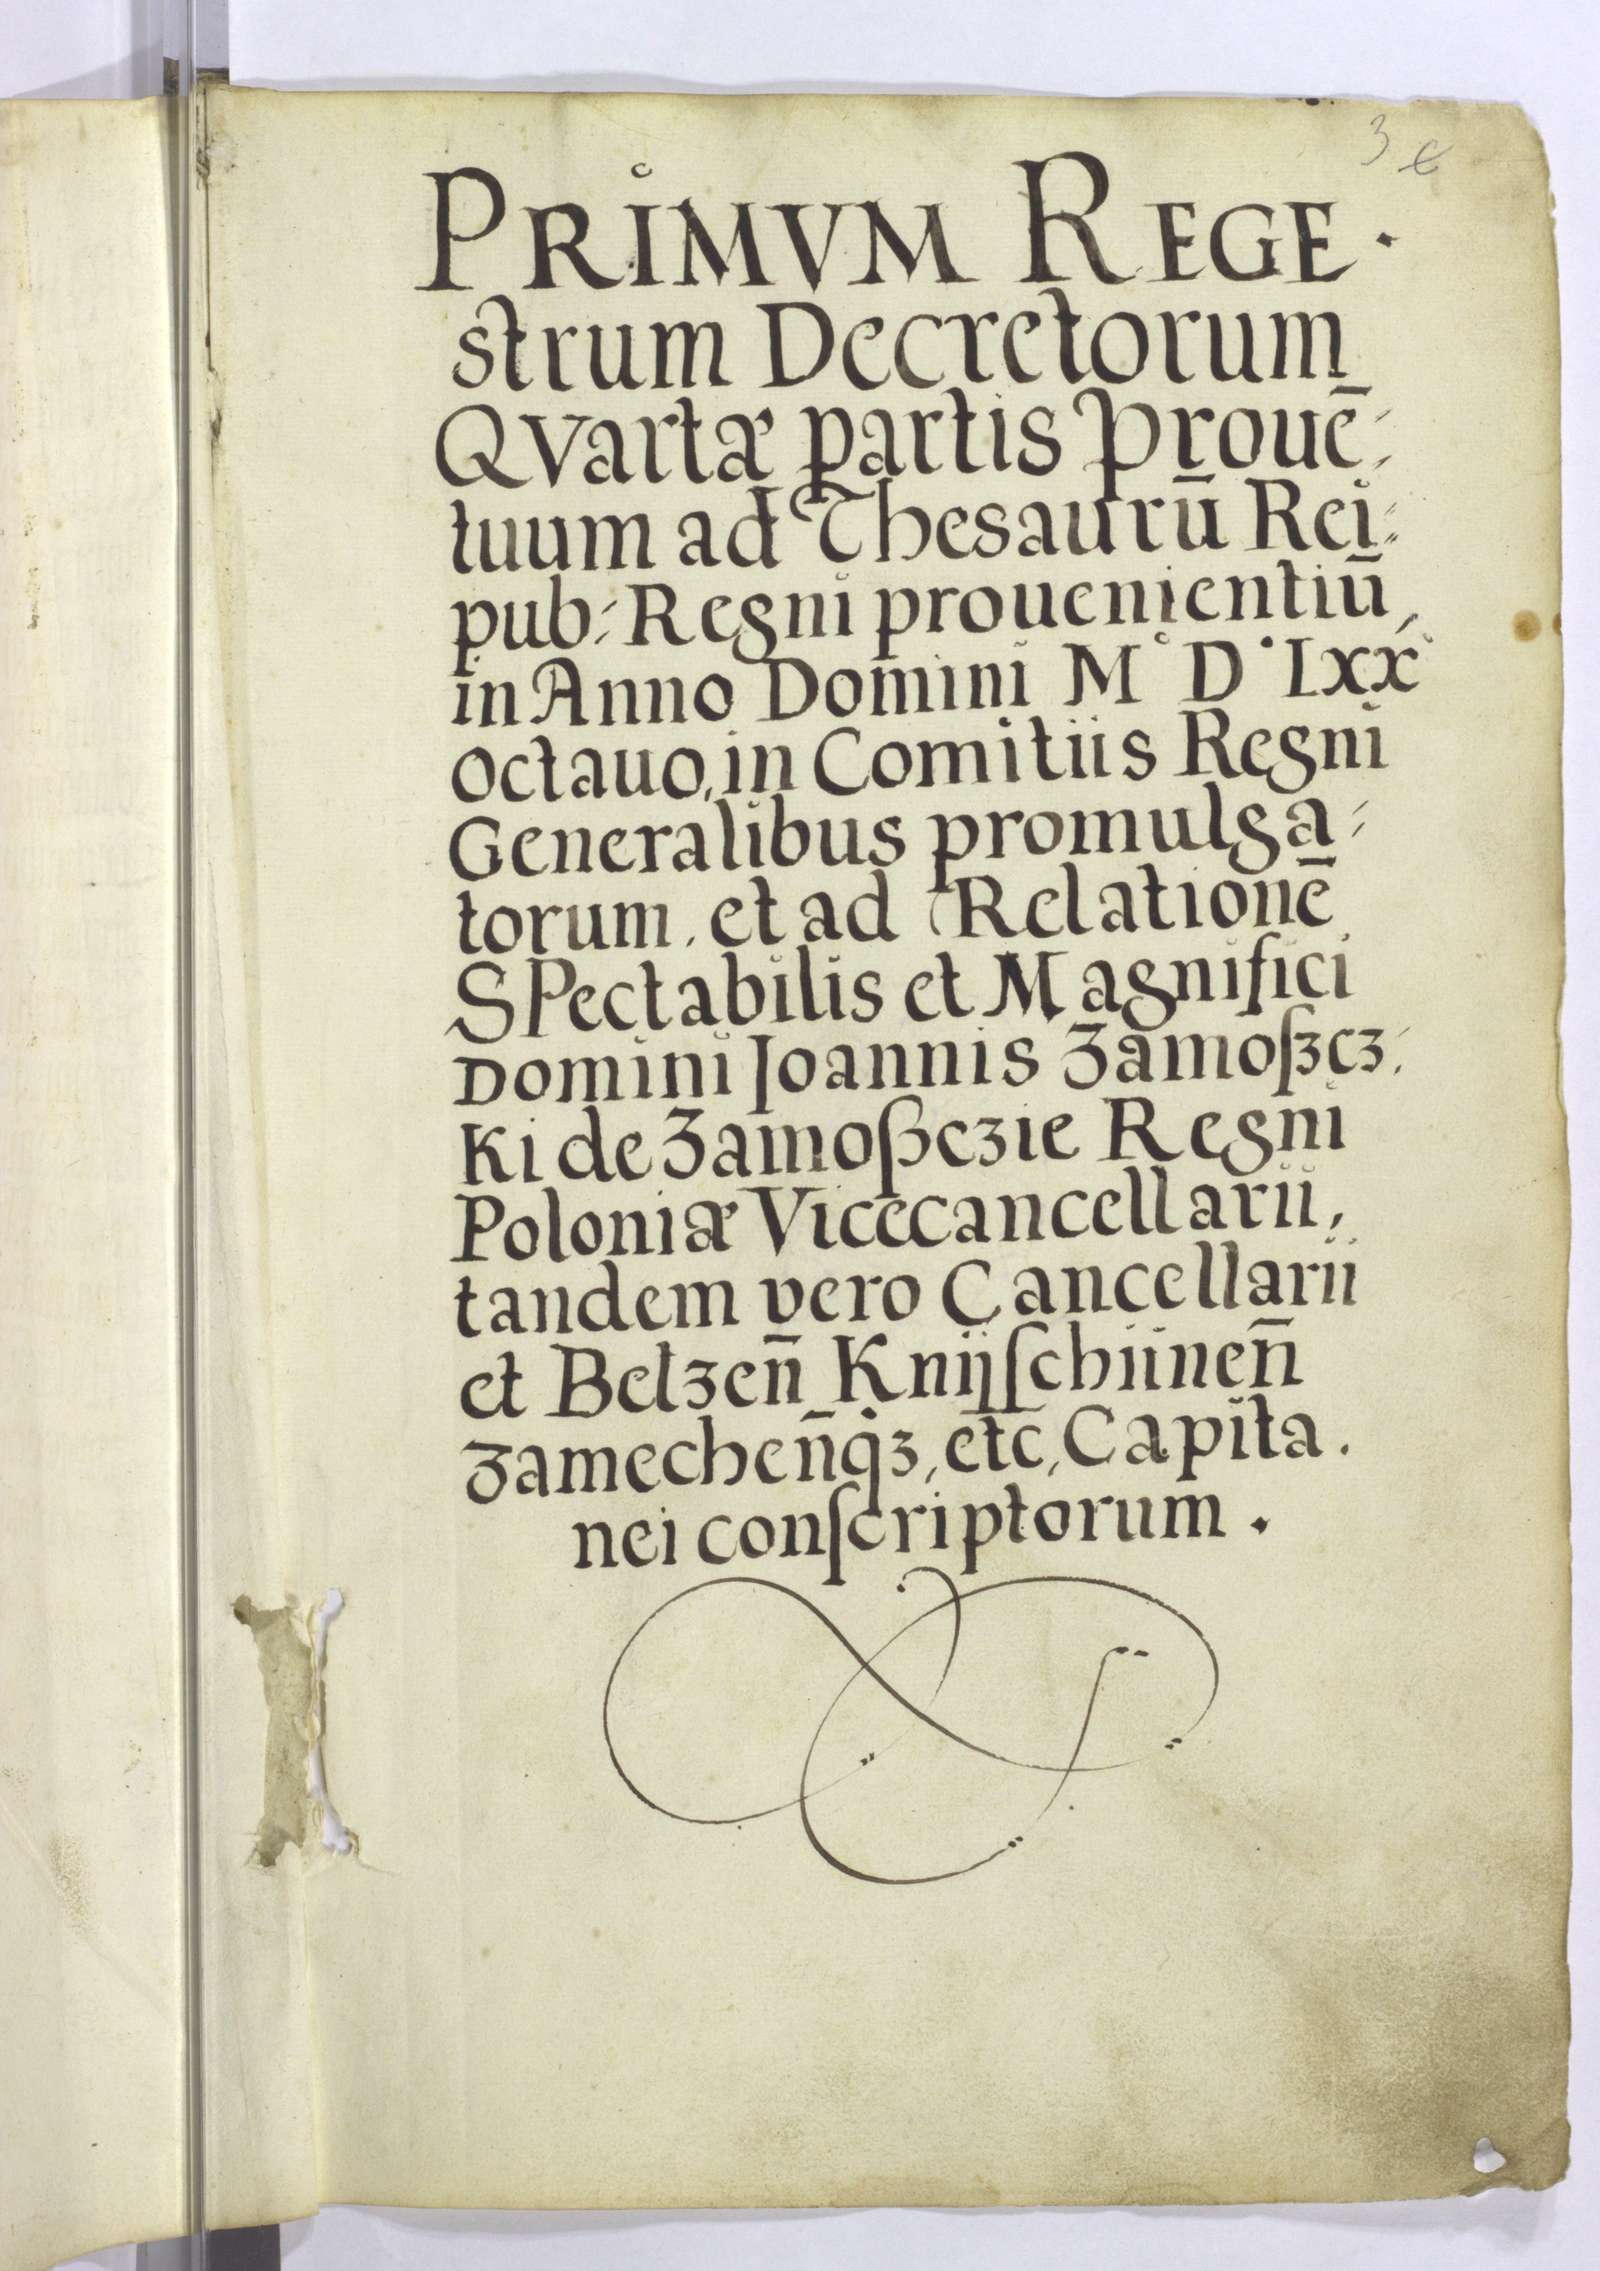 3
PRIMVM REGE·
strum Decretorum
QVartæ partis Prouē⸗
tuum ad Thesaurū Rei⸗
pub⸗ Regni prouenientiū,
in Anno Domini M° D° Lxx°
octauo, in Comitiis Regni
Generalibus promulga⸗
torum, et ad Relationē
SPectabilis et Magnifici
Domini Joannis Zamoſzcz⸗
Ki de Zamoſzczie Regni
Poloniæ Vicecancellarii,
tandem vero Cancellarii
et Belzen̄ Knijſchiinen̄
Zamechen̄q̃ꝫ, etc, Capita.
nei conſcriptorum.